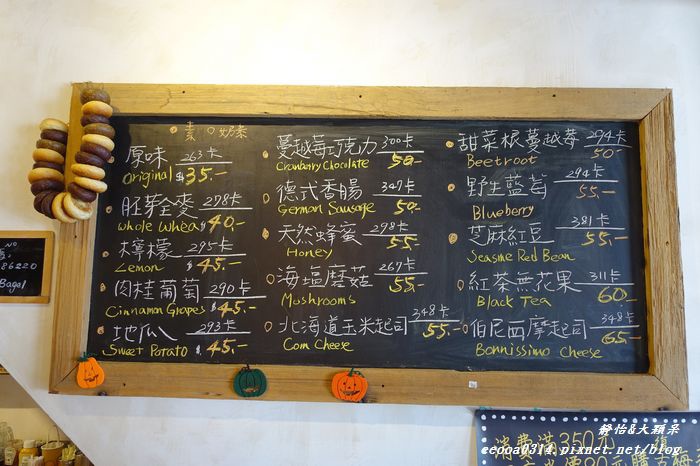 素 奶素
原味 263卡
Original $35.-
胚芽全麥 278卡
Whole Wheat $40.-
檸檬 295卡
Lemon $45.-
肉桂葡萄 290卡
Cinnamon Grapes $45.-
地瓜 293卡
Sweet Potato $45.-
蔓越莓巧克力 300卡
Cranberry Chocolate 50.-
德式香腸 347卡
German Sausage 50.-
天然蜂蜜 298卡
Honey 55.-
海塩蘑菇 267卡
Mushrooms 55.-
北海道玉米起司 348卡
Corn Cheese 55.-
甜菜根蔓越莓 294卡
Beetroot 50.-
野生藍莓 294卡
Blueberry 55.-
芝麻紅豆 381卡
Seasme Red Bean 55.-
紅茶無花果 311卡
Black Tea 60.-
伯尼西摩起司 348卡
Bonnissimo Cheese 65.-
NO
86220
Bagel
消費滿350元
靜怡&大顆呆
ecooa0314.pixnet.net/blog